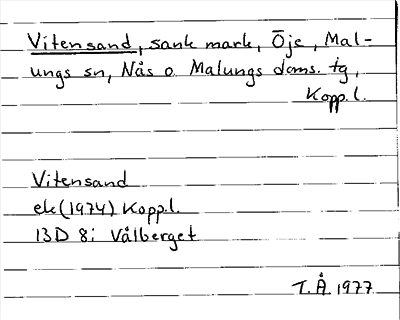 Vitensand, sank mark, Öje, Mal-
ungs sn, Nås o. Malungs doms. tg,
Kopp.l.
Vitensand
ek (1974) Kopp.l.
13D 8i Vålberget
T.Å. 1977